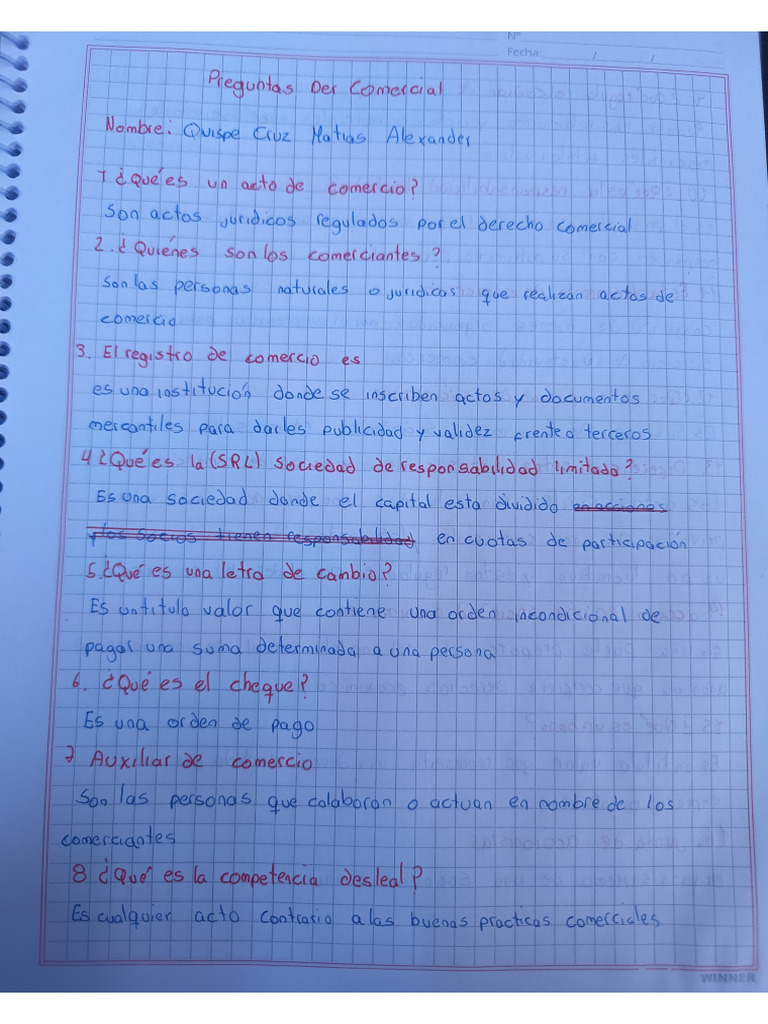 Nº
Fecha: / /
Preguntas Der Comercial
Nombre: Quispe Cruz Matias Alexander
1 ¿Qué es un acto de comercio?
Son actos juridicos regulados por el derecho comercial
2. ¿Quiénes son los comerciantes?
Son las personas naturales o juridicas que realizan actos de
comercio
3. El registro de comercio es
es una institución donde se inscriben actos y documentos
mercantiles para darles publicidad y validez frente a terceros
4 ¿Qué es la (SRL) Sociedad de responsabilidad limitada?
Es una sociedad donde el capital esta dividido en acciones
y los socios tienen responsabilidad en cuotas de participación
5. ¿Qué es una letra de cambio?
Es un titulo valor que contiene una orden incondicional de
pagar una suma determinada a una persona
6. ¿Qué es el cheque?
Es una orden de pago
7 Auxiliar de comercio
Son las personas que colaboran o actuan en nombre de los
comerciantes
8 ¿Qué es la competencia desleal?
Es cualquier acto contrario a las buenas practicas comerciales
WINNER